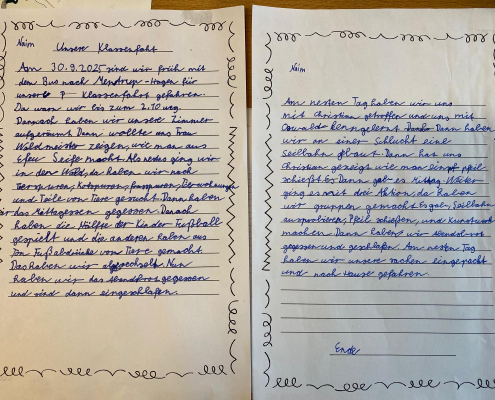 Naim
Unsere Klassenfahrt
Am 30.9.2025 sind wir früh mit
den Bus nach Mentrup-Hagen für
unsere Klassenfahrt gefahren.
Da waren wir bis zum 2.10 weg.
Dannach haben wir unsere Zimmer
aufgeräumt Dann wollte uns Frau
Waldmeister zeigen, wie man aus
Efeu Seife macht Als nedes ging wir
in den Wald, da haben wir nach
Tierspuren, Kotspuren, Fraspuren,
und Teile von Tiere gesucht. Dann haben
wir das Mittagessen gegessen Danach
haben die Hälfte der Kinder Fußball
gespielt und die anderen haben aus
Ton Fußabdrücke von Tiere gemacht.
Das haben wir abgewechselt. Nun
haben wir das Abendbrot gegessen
und sind dann eingeschlafen.
Naim
Am nesten Tag haben wir uns
mit Christian getroffen und uns mit
Oswald kennengelernt Dann haben
wir an einer Schlucht eine
Seilbahn gebaut Dann hat uns
Christian gezeigt wie man pfeil
schießt Es Dann gab es Mittag Weiter
ging es mit der Aktion, da haben
wir gruppen gemacht Es gab, Seilbahn
ausprobieren, Pfeil schießen, und Kunstwerk
machen Dann haben wir Abendbrot
gegessen und geschlafen. Am nesten Tag
haben wir unsere sachen eingepackt
und nach Hause gefahren.
Ende